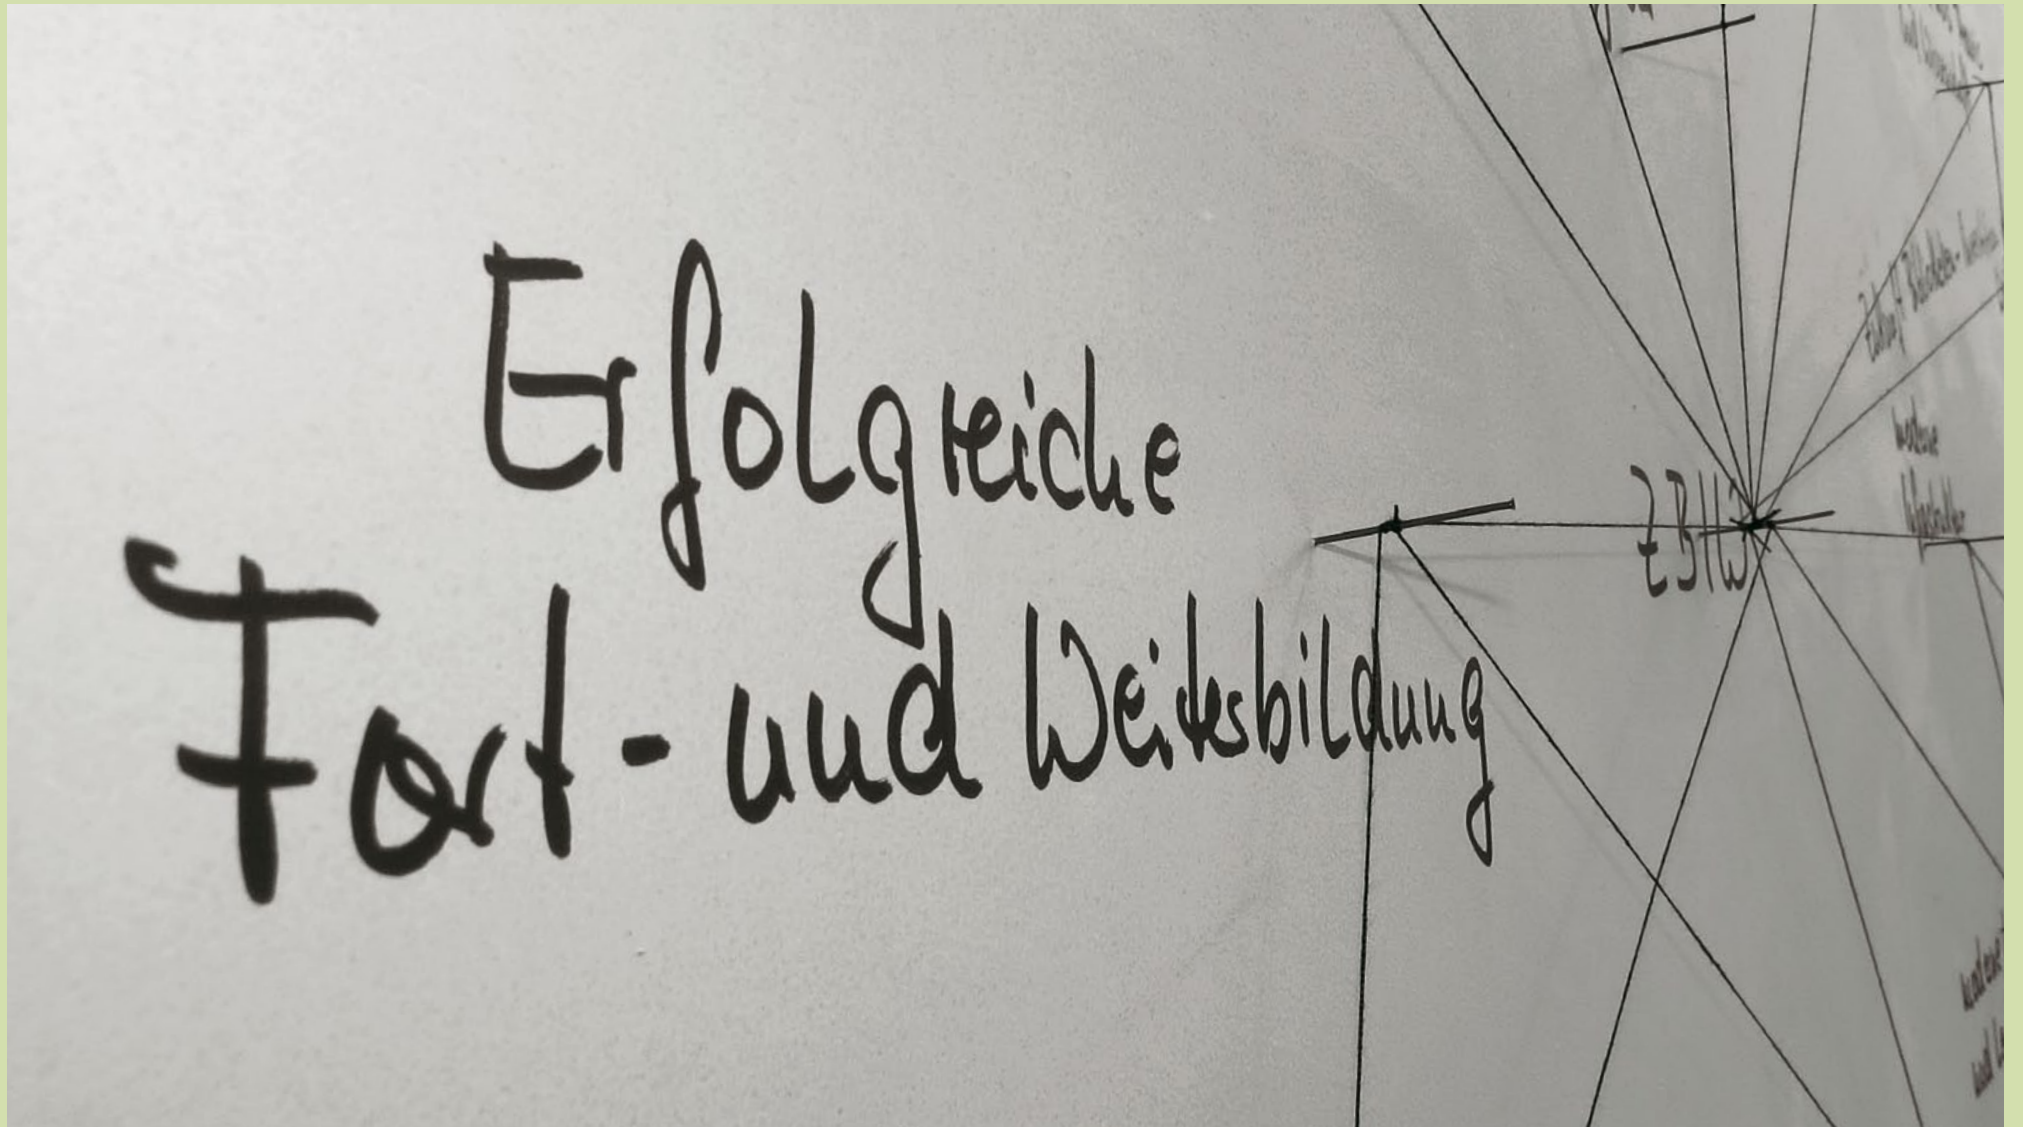 Erfolgreiche
Fort- und Weiterbildung
ZBIW
moderne